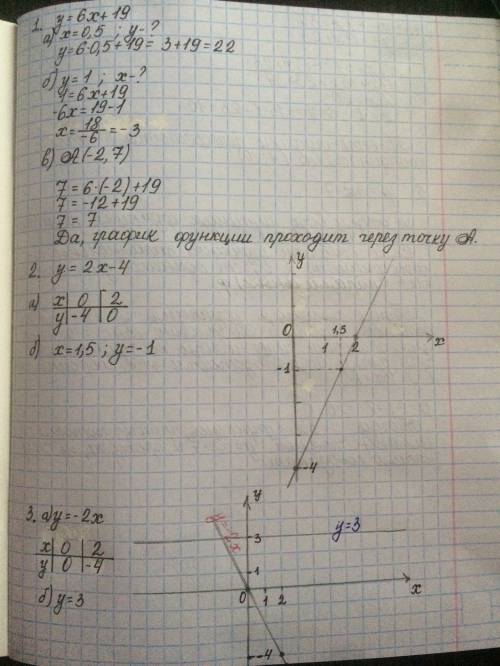 1. y=6x+19
а) x=0,5 ; y-?
y=6·0,5+19= 3+19=22
б) y=1 ; x-?
1=6x+19
-6x=19-1
x=18/-6=-3
в) A(-2,7)
7=6·(-2)+19
7=-12+19
7=7
Да, график функции проходит через точку A.
2. y=2x-4
а) x 0 2
y -4 0
б) x=1,5 ; y=-1
y
0 1,5
1 2 x
-1
-4
3. а) y=-2x
x 0 2
y 0 -4
б) y=3
y
y=-2x
y=3
3
1
0 1 2 x
-4